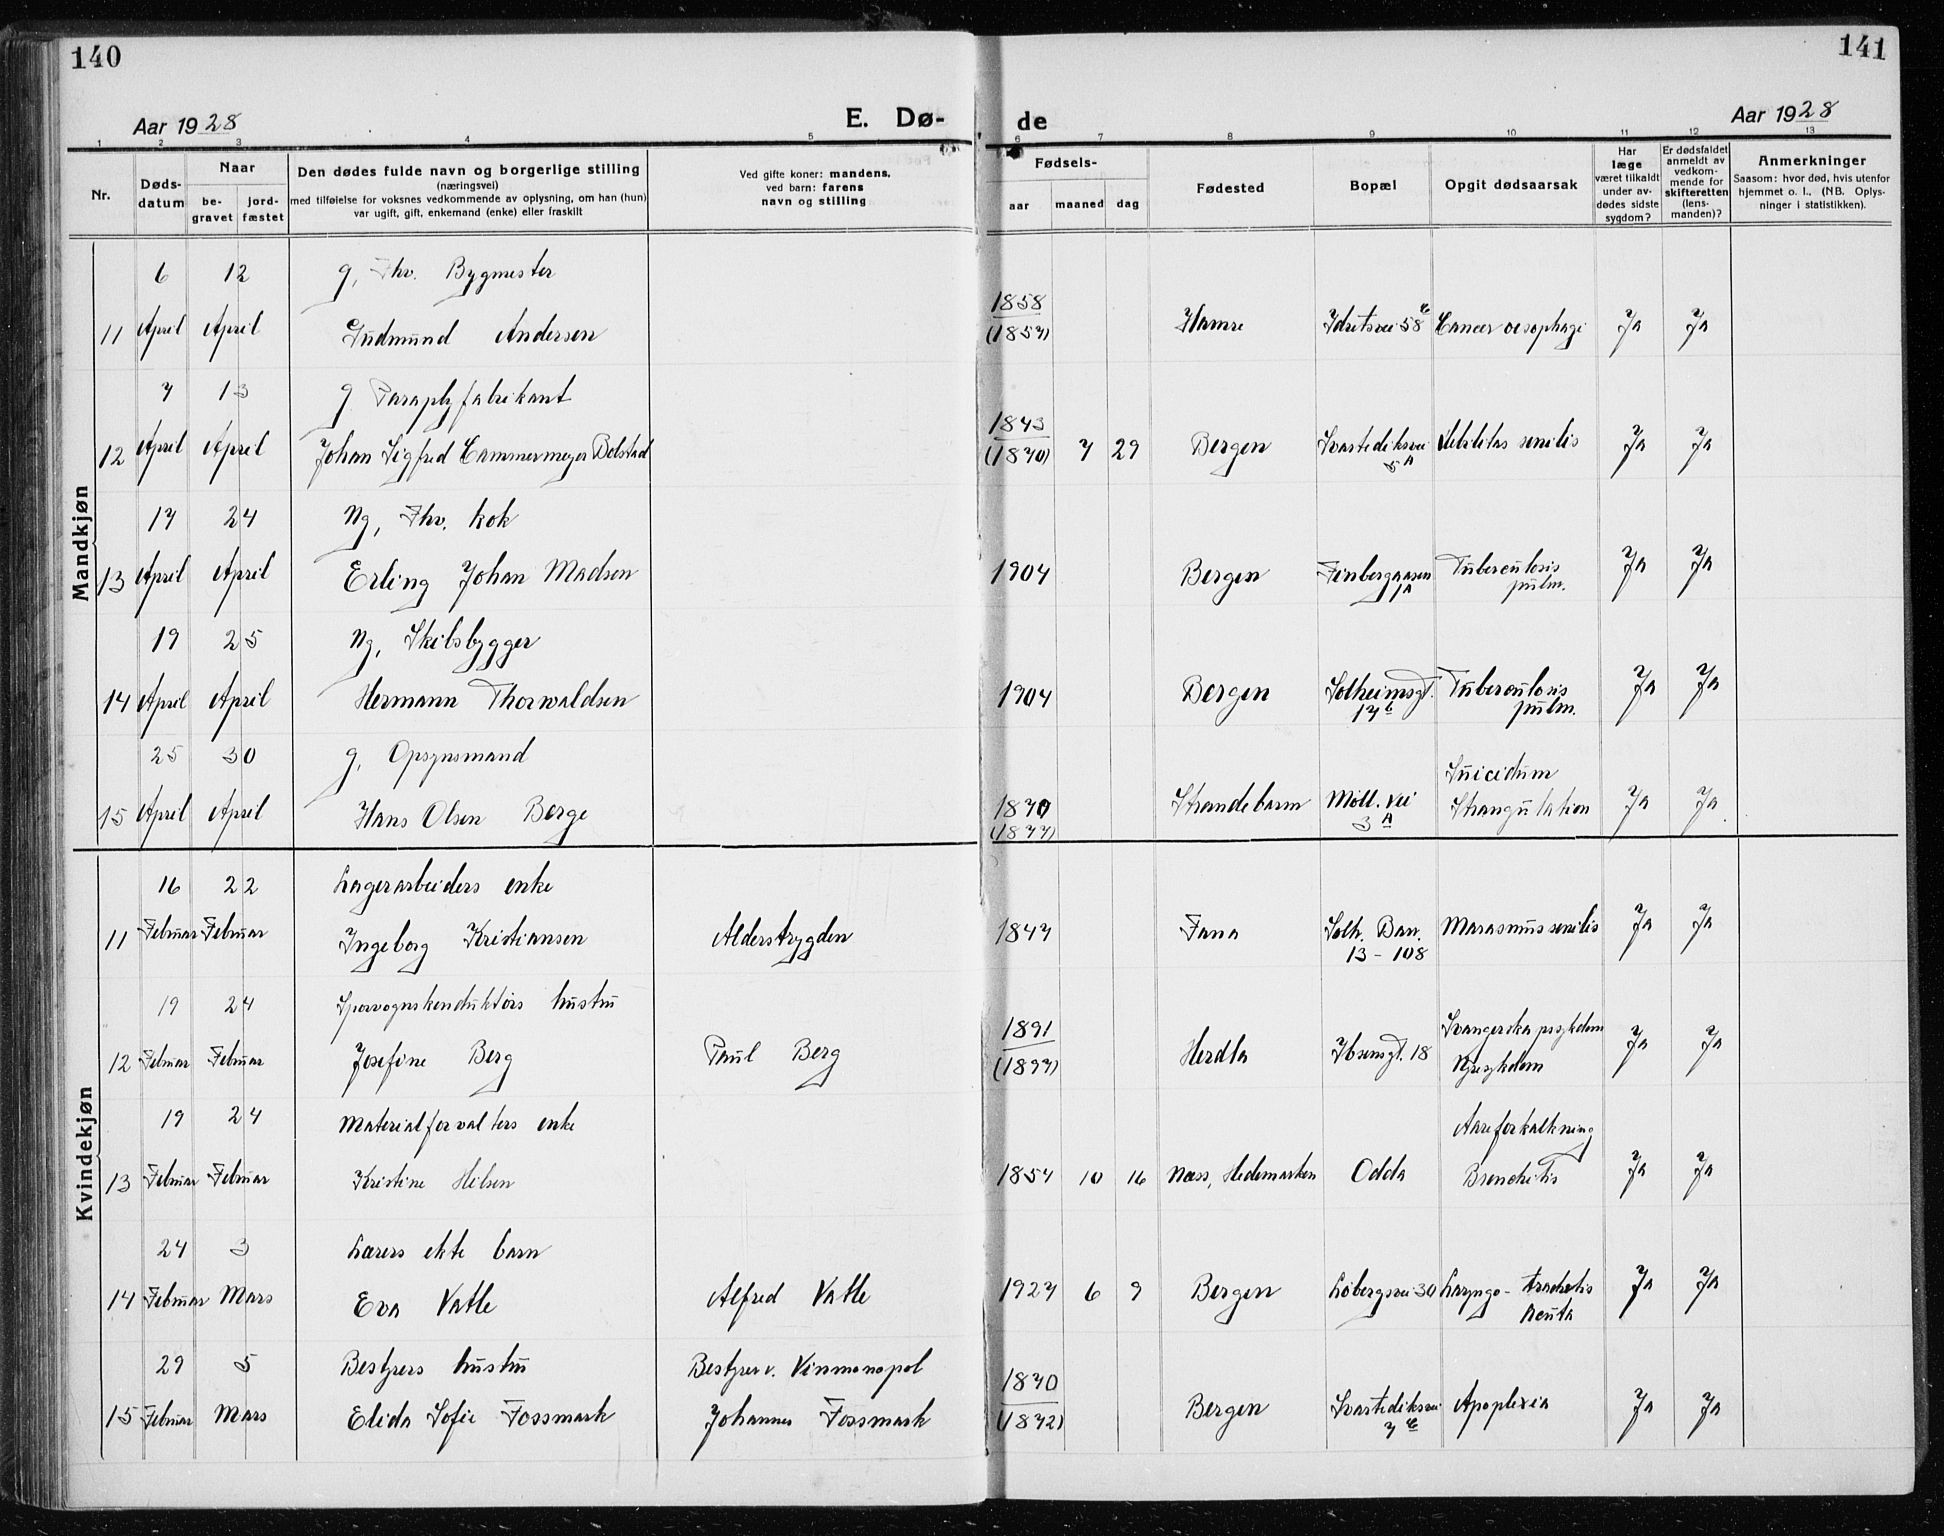 140
141
Aar 1928
E. Dø-
de
Aar 1928
1 2 3 4 5 6 7 8 9 10 11 12 13
Nr.
Døds-
datum
Naar
be-
gravet
jord-
fæstet
Den dødes fulde navn og borgerlige stilling
(næringsvei)
med tilføielse for voksnes vedkommende av oplysning, om han (hun)
var ugift, gift, enkemand (enke) eller fraskilt
Ved gifte koner: mandens.
ved barn: farens
navn og stilling
Fødsels-
aar maaned dag
Fødested
Bopæl
Opgit dødsaarsak
Har
læge
været tilkaldt
under av-
dødes sidste
sygdom?
Er dødsfaldet
anmeldt av
vedkom-
mende for
skifteretten
(lens-
manden)?
Anmerkninger
Saasom: hvor død, hvis utenfor
hjemmet o. l., (NB. Oplys-
ninger i statistikken).
Mandkjøn
6 12 g, Fhv. Bygmester
1858
11 April April Gudmund Andersen (1857) Hamre Idretsvei 58 c Cancer oesophagi Ja Ja
7 13 g Paraplyfabrikant
1843
12 April April Johan Sigfred Cammermeyer Bolstad (1840) 7 29 Bergen Svartediksvei Debilitas senilis Ja Ja
5 A
17 24 Ng, Fhv. kok
13 April April Erling Johan Madsen 1904 Bergen Finbergaasen Tuberculosis Ja Ja
1A pulm.
19 25 Ng, Skibsbygger
14 April April Hermann Thorwaldsen 1904 Bergen Solheimsgt. Tuberculosis Ja Ja
17 b pulm.
25 30 g, Opsynsmand
Suicidum
15 April April Hans Olsen Berge 1870 Strandebarm Møll. vei Strangulation Ja Ja
(1877) 3 A
Kvindekjøn
16 22 Lagerarbeiders enke
11 Februar Februar Ingeborg Kristiansen Alderstrygden 1847 Fana Solh. Bar. Marasmus senilis Ja Ja
13 - 108
19 24 Sporvognskonduktørs hustru
1891 Svangerskapssykdom
12 Februar Februar Josefine Berg Paul Berg (1897) Herdla Ibsensgt. 18 Nyresykdom Ja Ja
19 24 Materialforvalters enke
Aareforkalkning
13 Februar Februar Kristine Hilsen 1854 10 16 Næss, Hedemarken Odda Bronchitis Ja Ja
24 3 Lærers ekte barn
14 Februar Mars Eva Vatle Alfred Vatle 1927 6 9 Bergen Løbergsvei 30 Laryngo-tracheitis Ja Ja
acuta
29 5 Bestyrers hustru Bestyrer v. Vinmonopol
1870
15 Februar Mars Elida Sofie Fossmark Johannes Fossmark (1872) Bergen Svartediksvei Apoplexia Ja Ja
7 c